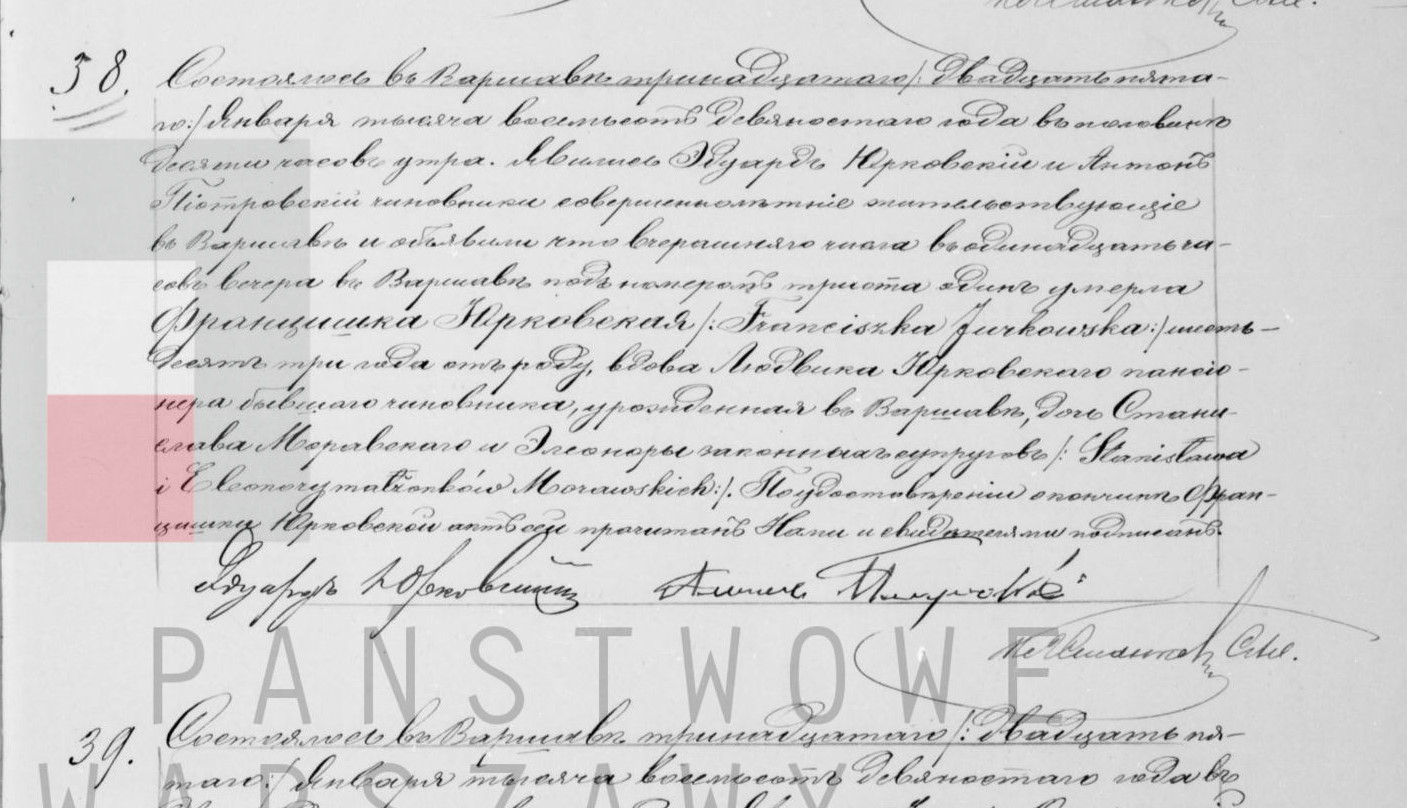 38. Состоялось въ Варшавѣ тринадцатаго /: двадцать пята-
го:/ Января тысяча восемьсотъ девяностаго года въ половинѣ
десяти часовъ утра. Явились Эдуардъ Юрковскій и Антонъ
Піотровскій чиновники совершеннолѣтніе жительствующіе
въ Варшавѣ и объявили что вчерашняго числа въ одинадцать ча-
совъ вечера въ Варшавѣ подъ номеромъ триста одинъ умерла
Францишка Юрковская /: Franciszka Jurkowska:/ шесть-
десятъ три года отъ роду, вдова Людвика Юрковскаго пансіо-
нера бывшаго чиновника, урожденная въ Варшавѣ, дочь Стани-
слава Моравскаго и Элеоноры законныхъ супруговъ /: Stanisława
i Eleonory małżonków Morawskich:/. По удостовѣреніи о кончинѣ Фран-
цишки Юрковской актъ сей прочитанъ Нами и свидѣтелями подписанъ.
Эдуардъ Юрковскій
PAŃSTWOWE
39. Состоялось въ Варшавѣ тринадцатаго /: двадцать пя-
таго:/ Января тысяча восемьсотъ девяностаго года въ
WARSZAWY